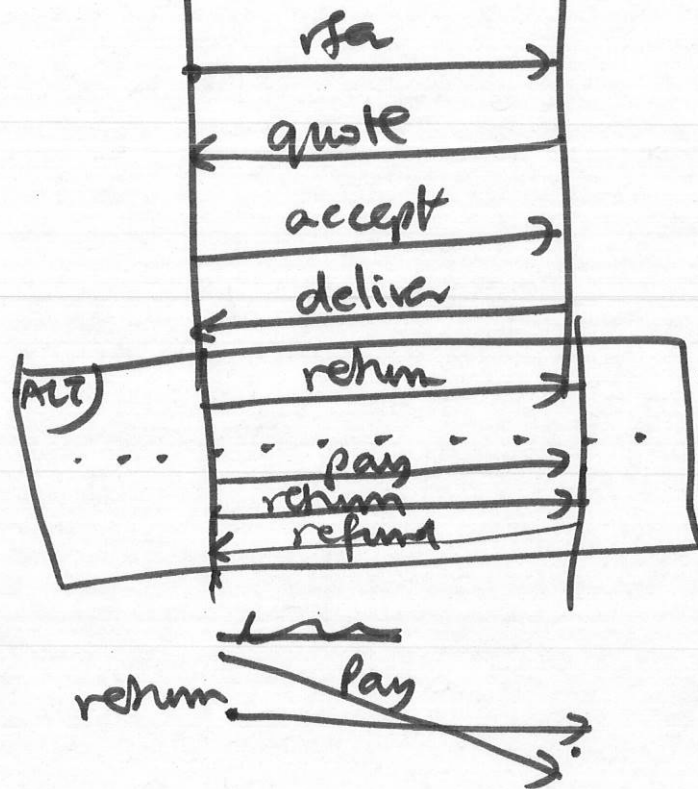 quote
accept
deliver
ALT
return
pay
return
refund
Pay
return